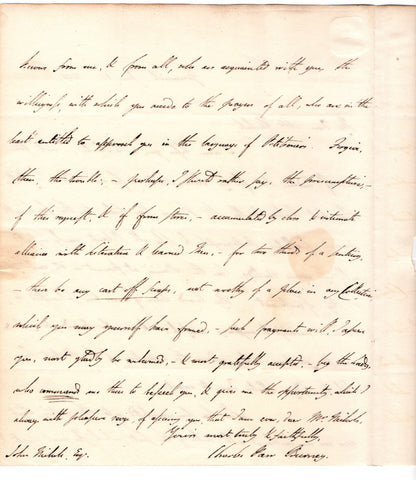 known from me, & from all, who are acquainted with you, the
willingness, with which you accede to the prayers of all, who are in the
least entitled to approach you in the language of Petitioners. Forgive,
then, the trouble, – perhaps, I should rather say, the presumption, –
of this request, & if from stores, – accumulated by close & intimate
alliance with Literature & learned Men, – for two thirds of a century,
– there be any cast off scraps, not worthy of a place in any Collection
which you may yourself have formed, – such fragments will, I assure
you, most gladly be welcomed, – & most gratefully accepted, – by the Lady,
who commands me thus to beseech you, & gives me the opportunity, which I
always with pleasure seize, of assuring you, that I am ever, dear Mr Nichols,
Yours most truly & faithfully,
John Nichols, Esq. Charles Parr Burney.